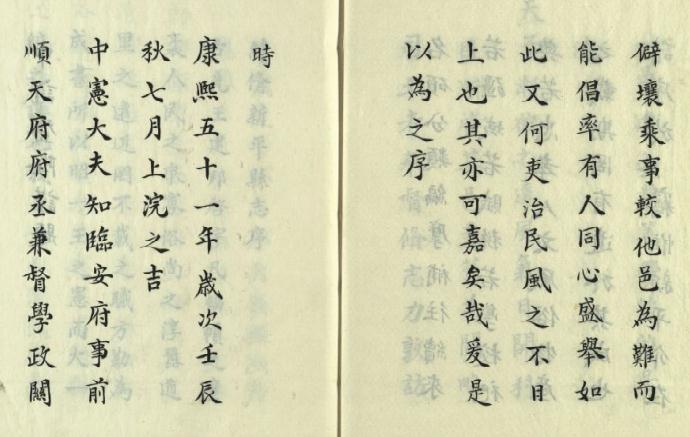 僻壤乘事較他邑為難而
能倡率有人同心盛舉如
此又何吏治民風之不日
上也其亦可嘉矣哉爰是
以為之序
時
康熙五十一年歲次壬辰
秋七月上浣之吉
中憲大夫知臨安府事前
順天府府丞兼督學政關